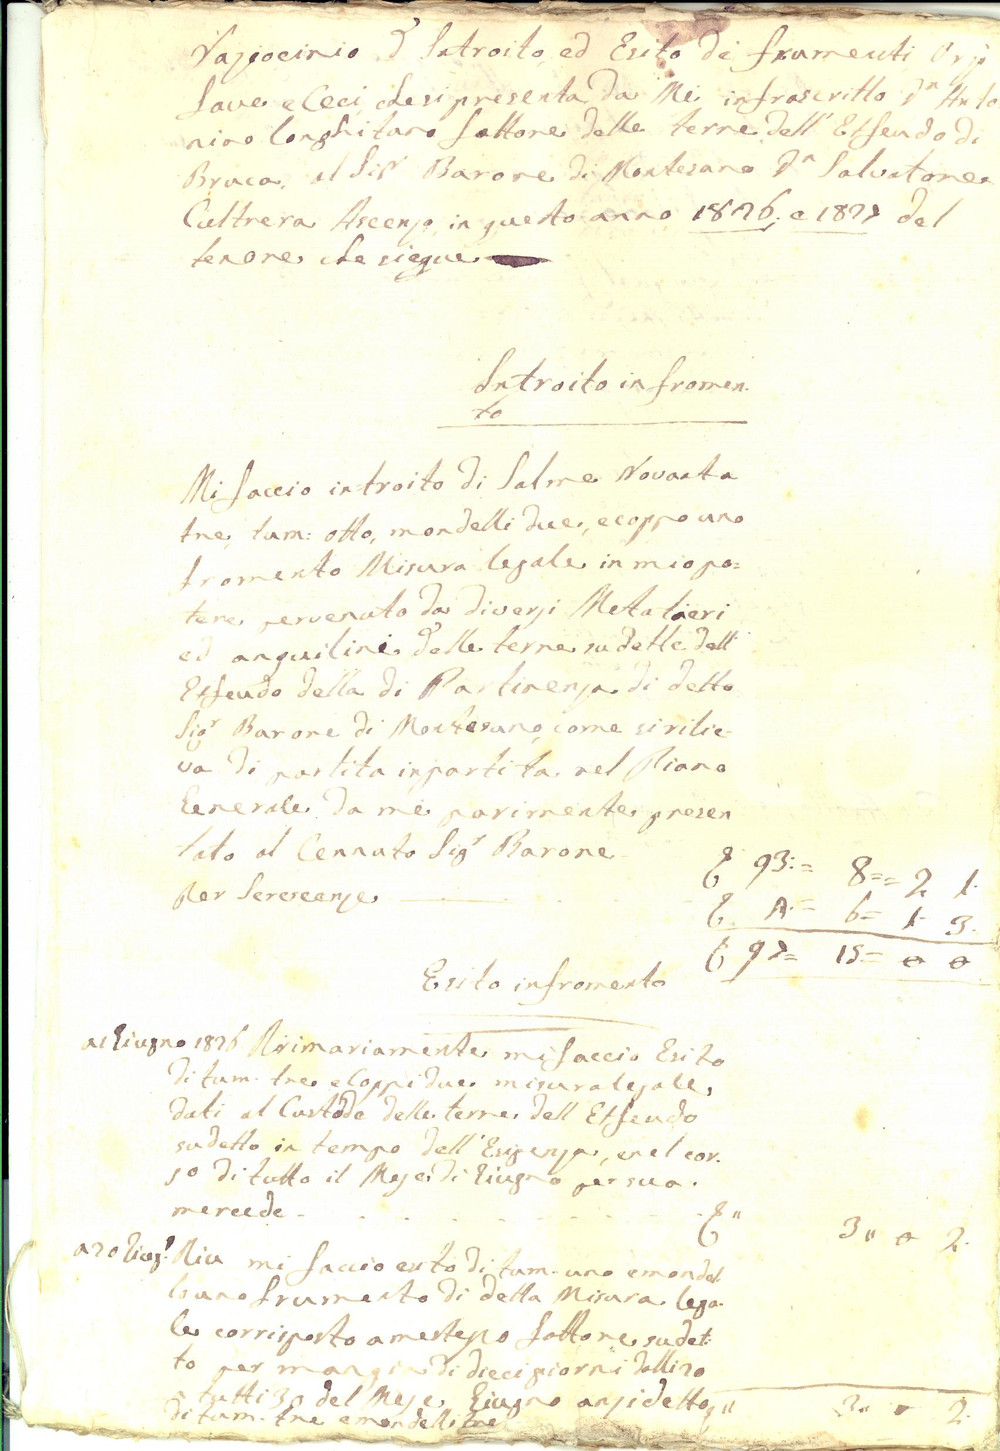 Raziocinio d'Introito, ed Esito di frumenti Orzi
fave, e Ceci, che si presenta da Me infrascritto Dn Anto
nino Longhitano fattore delle terre dell'Exfeudo di
Braca, al Sigr Barone di Montesano Dn Salvatore
Cultrera Ascenzo, in questo anno 1826, e 1827 del
tenore che siegue
Introito in fromen.
to
Mi faccio introito di Salme Novanta
tre, tum: otto, mondelli due, e coppo uno
fromento Misura legale in mio po=
tere pervenuto da diversi Metatieri
ed anquilini delle terre sudette dell'
Exfeudo della di Partinenza di detto
Sigr Barone di Montesano, come si rilie-
va di partita in partita nel Piano
Generale da me parimente presen
tato al Cennato Sigr Barone
93:= 8== 2 1.
Per Serescenze
4.= 6= 1- 3.
97= 15= 0 0
Esito in fromento
a 1 Giugno 1826 Primariamente mi faccio Esito
di tum. tre, e Coppi due misura legale,
dati al Custode delle terre dell'Exfeudo
sudetto in tempo dell'Esigenza, e nel cor.
so di tutto il Mese di Giugno per sua
mercede
3" 0 2.
a 20 Giug.o Piu mi faccio esito di tum. uno e mondel
lo uno frumento di detta Misura lega
le corrisposto a me stesso fattore sudet:
to per mangia di dieci giorni dalli 20
a tutti 30 del Mese Giugno anzidetto
di tum. tre e mondelli tre
3. 0 2.